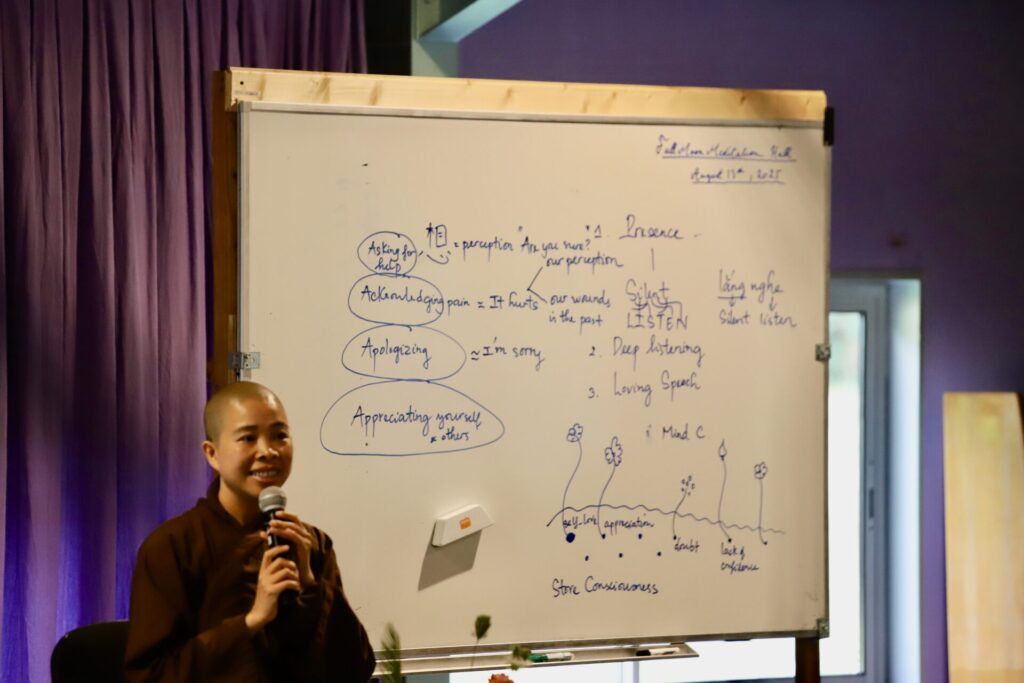 Full Moon Meditation Hall
August 13th, 2025
Asking for help
= perception "Are you sure?"
our perception
Acknowledging pain = It hurts
our wounds
in the past
Apologizing ≈ I'm sorry
Appreciating yourself
others
1. Presence
Silent
LISTEN
lắng nghe
Silent listen
2. Deep listening
3. Loving Speech
Mind C
self-love
appreciation
doubt
lack of
confidence
Store Consciousness